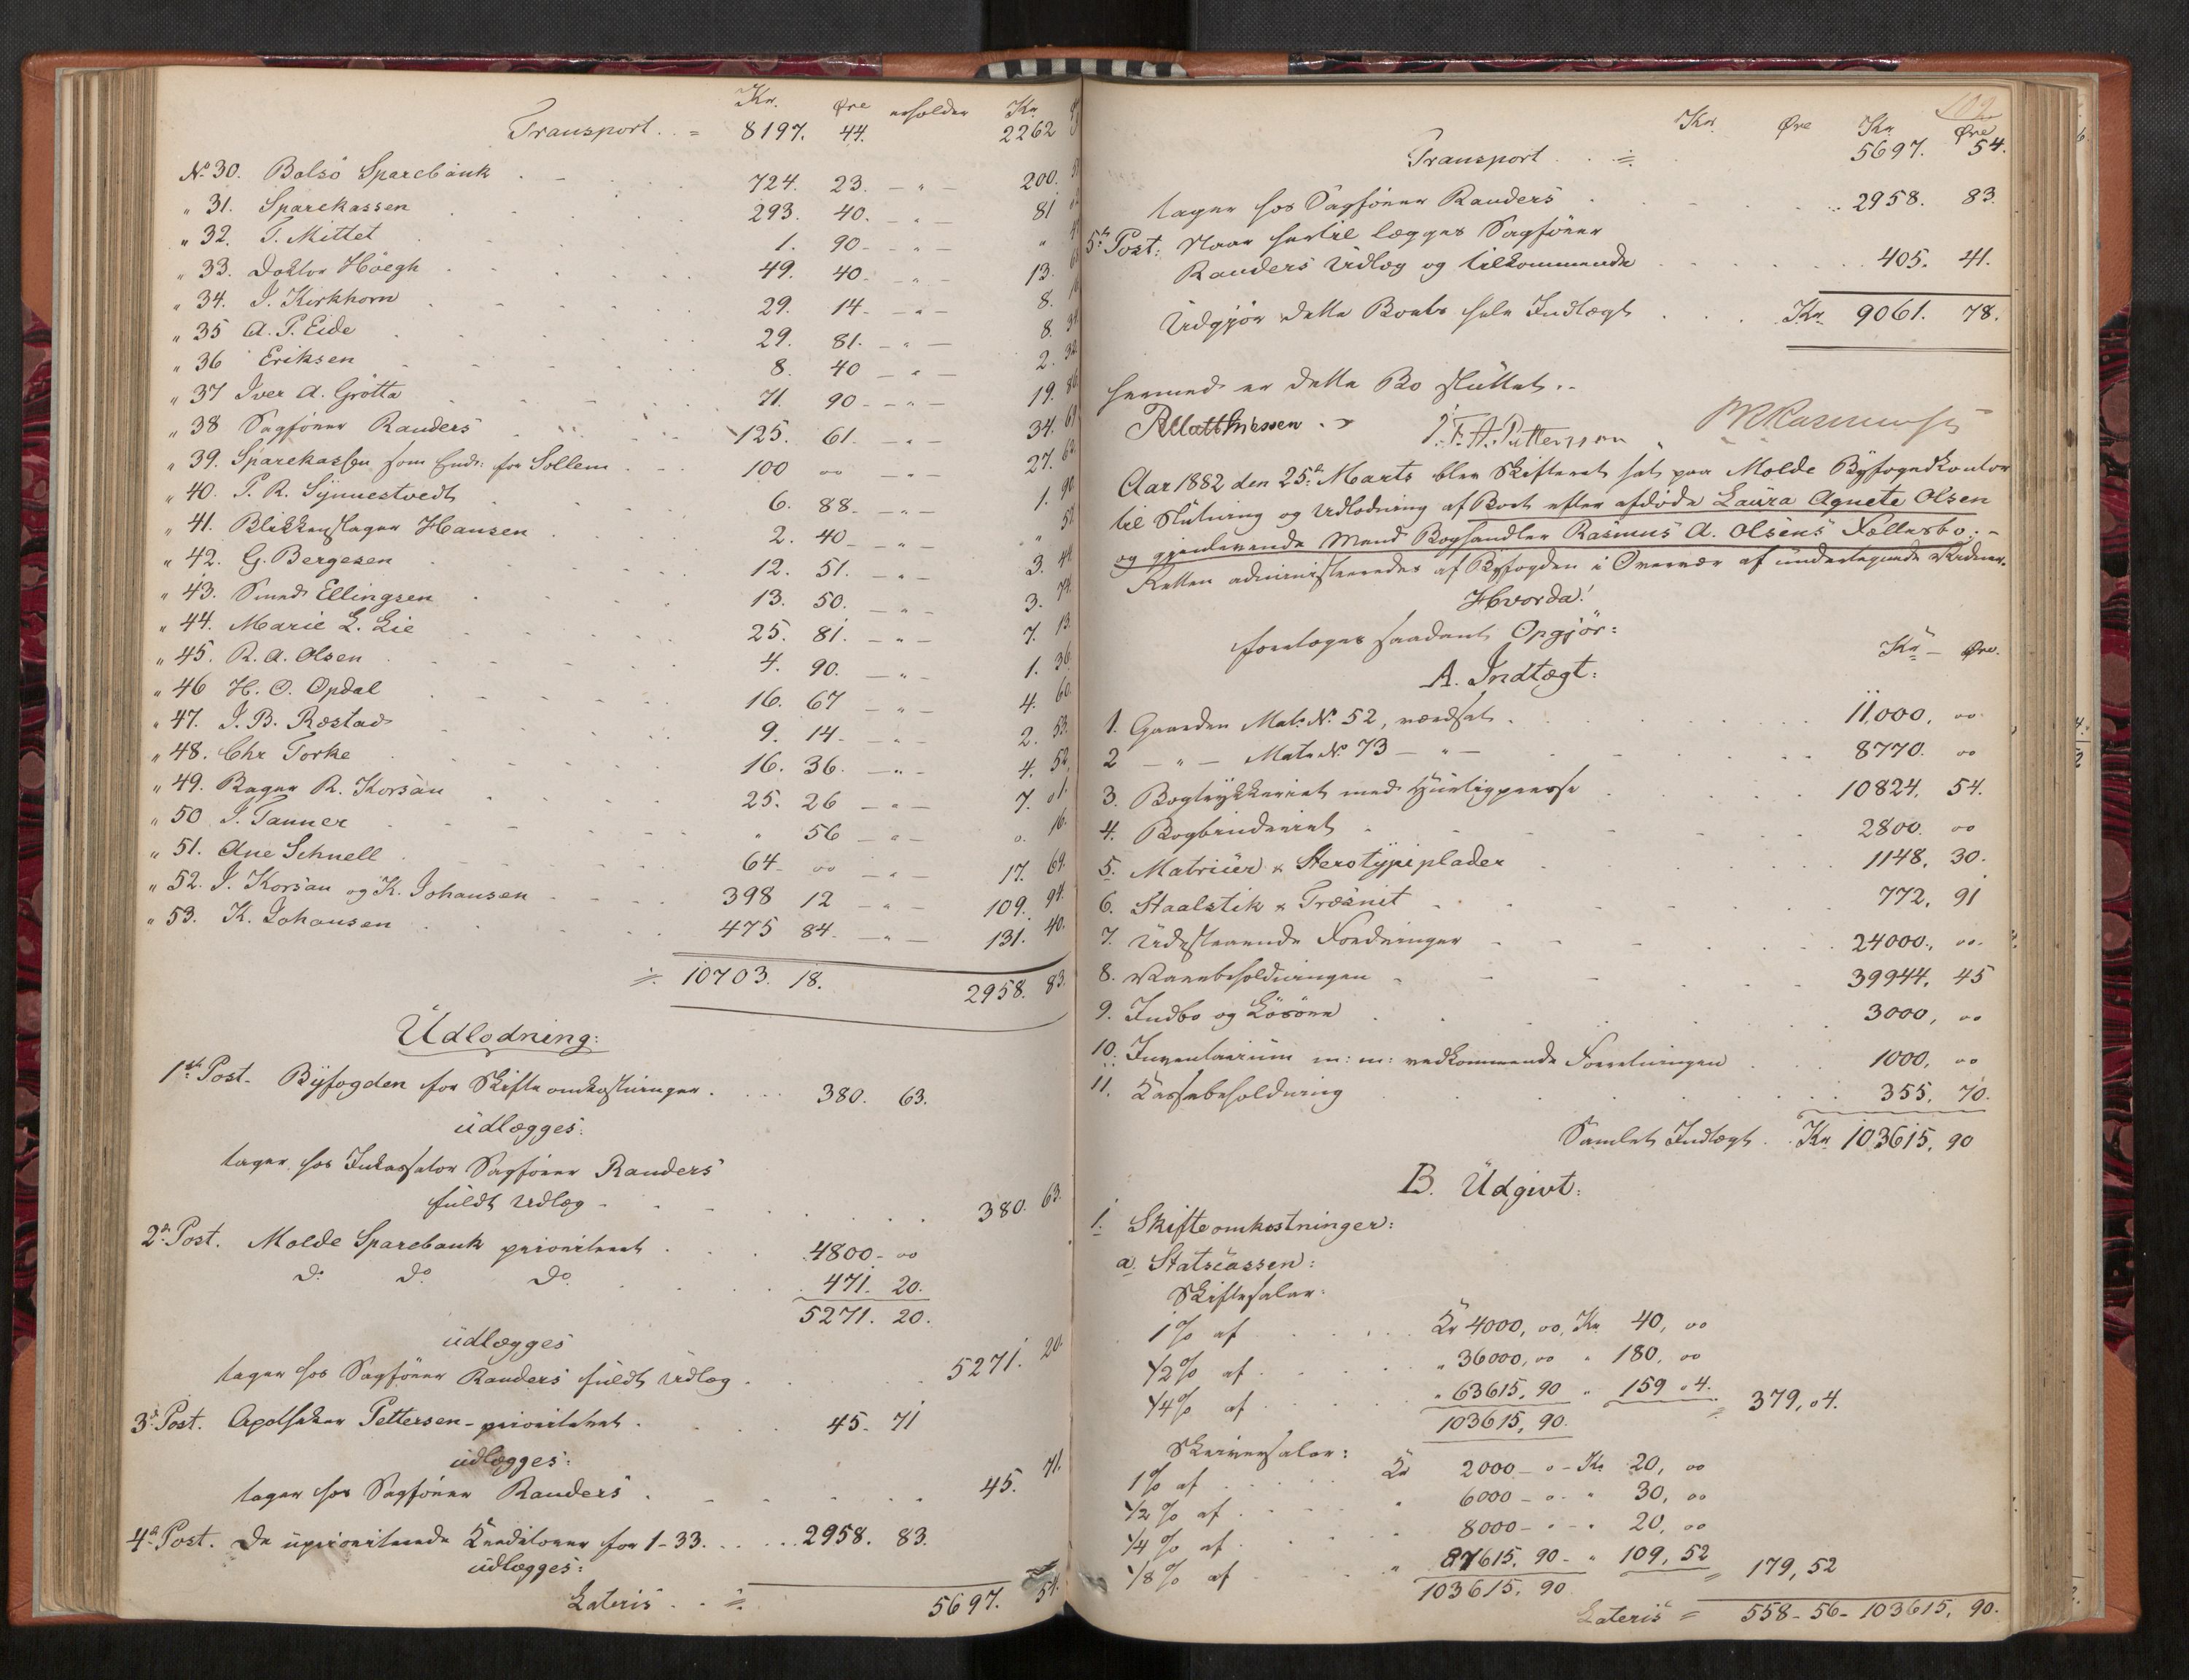 Kr. Øre erholder Kr.
Transport. . = 8197. 44. 2262
No 30. Bolsö Sparebank 724. 23. - " - 200.
" 31. Sparekassen 293. 40. - " - 81
" 32. T. Mittet 1. 90 - " - "
" 33. Doktor Höegh 49. 40. - " - 13.
" 34. I. Kirkhorn 29. 14. - " - 8.
" 35 A. P. Eide 29. 81. - " - 8.
" 36 Eriksen 8. 40 - " - 2. 32.
" 37 Iver A. Grötta 71. 90 - " - 19. 86.
" 38 Sagförer Randers 125. 61. - " - 34.
" 39. Sparekassen som Endr: for Sollem 100 00 - " - 27.
" 40. P. R. Synnestvedt 6. 88. - " - 1. 90
" 41. Blikkenslager Hansen 2. 40 - " - "
" 42. G. Bergesen 12. 51. - " - 3.
" 43. Smed Ellingsen 13. 50. - " - 3. 74.
" 44. Marie L. Lie 25. 81. - " - 7. 13.
" 45. R. A. Olsen 4. 90. - " - 1. 36.
" 46 H. O. Opdal 16. 67 - " - 4. 60.
" 47. I. B. Røstad 9. 14 - - " - 2. 53.
" 48. Chr Torke 16. 36. - " - 4. 52.
" 49. Bager R. Korsau 25. 26 - " - 7. 01.
" 50 I. Tanner " 56 - " - 0. 16.
" 51. Ane Schnell 64 - 00 - " - 17. 69.
" 52. I. Korsau og K. Johansen 398 12 - " - 109. 94.
" 53. K. Johansen 475 84. - " - 131. 40.
10703. 18. 2958. 83.
Udlodning:
1ste Post. Byfogden for Skifteomkostninger. 380. 63.
udlægges:
tager hos Inkassator Sagförer Randers
fuldt Udlæg - 380. 63.
2den Post. Molde Sparebank prioriteret 4800 - 00
Do Do Do 471. 20.
5271. 20.
udlægges
tager hos Sagförer Randers fuldt Udlæg. 5271. 20.
3die Post. Apotheker Pettersen - prioriteret. 45. 71
udlægges:
tager hos Sagförer Randers. 45. 71.
4de Post. De uprioriterede Kreditorer for 1-33. 2958. 83.
udlægges:
Lateris. . 5697. 54.
102
Kr. Øre Kr. Øre
Transport 5697. 54.
tager hos Sagförer Randers 2958. 83.
5te Post: Naar hertil lægges Sagförer
Randers Udlæg og tilkommende 405. 41.
Udgjör dette Boets hele Indtægt Kr. 9061. 78.
Hermed er dette Bo sluttet. -
Aar 1882 den 25de Marts blev Skifteret sat paa Molde Byfogedkontor
til Slutning og Udlodning af Boet efter afdöde Laura Agnete Olsen
og gjenlevende Mand Boghandler Rasmus A. Olsens Fællesbo. -
Retten administreredes af Byfogden i Overvær af undertegnede Vidner.
Hvorda!
foretoges saadant Opgjör:
Kr - Øre.
A. Indtægt:
1. Gaarden Mat: No 52, værdsat. 11,000, 00
2 - " - Mat: No 73 - " - 8770. 00
3. Bogtrykkeriet med Hurtigpresse 10824, 54.
4. Bogbinderiet 2800. 00
5. Matricer & Sterotypiplader 1148, 30.
6. Staalstik & Træsnit 772, 91
7. Udestaaende Fordringer 24000, 00.
8. Varebeholdningen 39944, 45
9. Indbo og Lösöre 3000, 00
10. Inventarium m: m: vedkommende Forretningen 1000, 00
11. Kassebeholdning 355, 70.
Samlet Indtægt. Kr 103615, 90
B. Udgivt:
1. Skifteomkostninger:
a. Statscassen:
Skiftesalær:
1 % af Kr 4000, 00, Kr 40, 00
1/2 % af " 36000, 00 " 180, 00
1/4 % af " 63615, 90 " 159 04. = 379, 04.
103615, 90.
Skriversalær:
1 % af Kr 2000 - " - Kr 20, 00
1/2 % af " 6000 - " - " 30, 00
1/4 % af " 8000 - " - " 20, 00
1/8 % af " 87615, 90 - " 109, 52 = 179, 52
103615, 90
Lateris = 558 - 56 - 103615, 90.